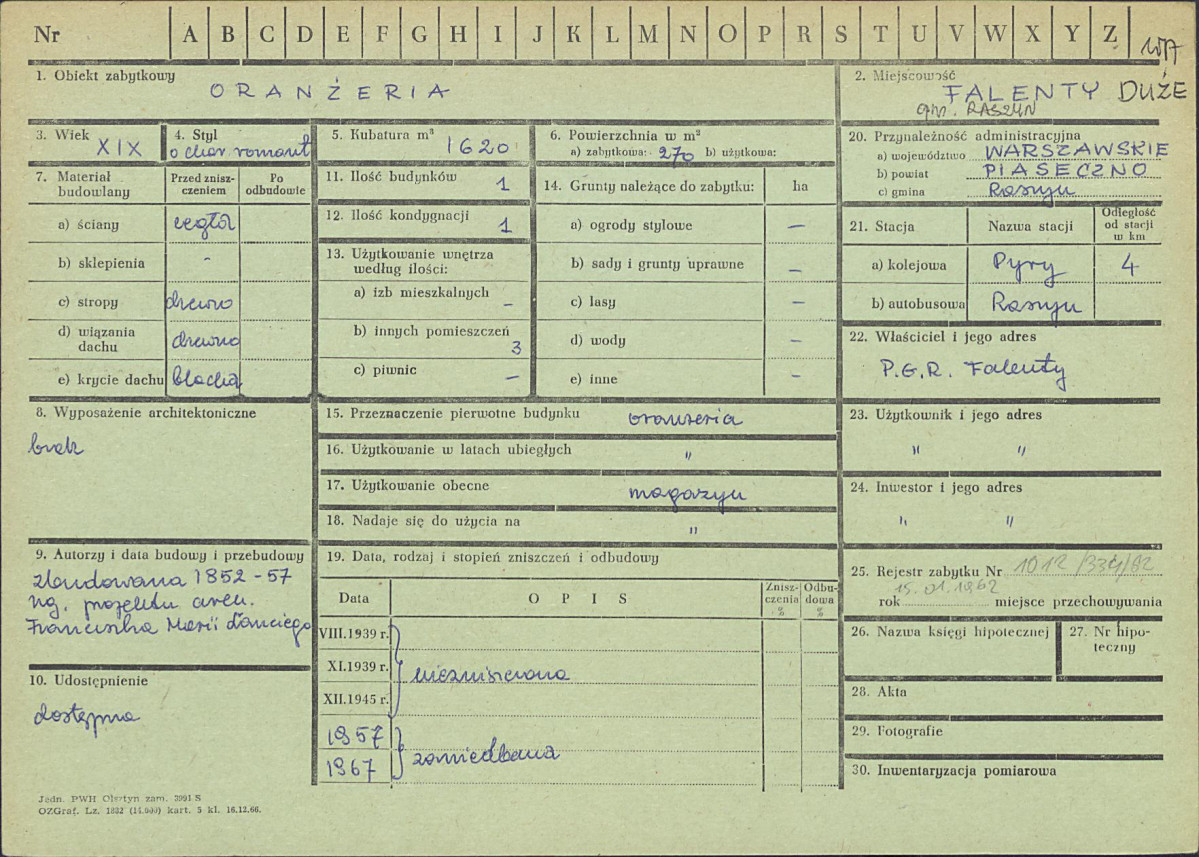 Nr A B C D E F G H I J K L M N O P R S T U V W X Y Z
1. Obiekt zabytkowy
ORANŻERIA
2. Miejscowość
FALENTY DUŻE
gm. RASZYN
3. Wiek
XIX
4. Styl
o char. romant
5. Kubatura m³
1620
6. Powierzchnia w m²
a) zabytkowa: 270 b) użytkowa:
7. Materiał budowlany
Przed zniszczeniem
Po odbudowie
a) ściany cegła
b) sklepienia -
c) stropy drewno
d) wiązania dachu drewno
e) krycie dachu blacha
11. Ilość budynków 1
12. Ilość kondygnacji 1
13. Użytkowanie wnętrza
według ilości:
a) izb mieszkalnych –
b) innych pomieszczeń 3
c) piwnic –
14. Grunty należące do zabytku: ha
a) ogrody stylowe –
b) sady i grunty uprawne –
c) lasy –
d) wody –
e) inne –
8. Wyposażenie architektoniczne
brak
9. Autorzy i data budowy i przebudowy
zbudowana 1852-57
wg. projektu arch.
Franciszka Marii Lanciego
10. Udostępnienie
dostępna
15. Przeznaczenie pierwotne budynku oranżeria
16. Użytkowanie w latach ubiegłych "
17. Użytkowanie obecne magazyn
18. Nadaje się do użycia na "
19. Data, rodzaj i stopień zniszczeń i odbudowy
Data OPIS Zniszczenia % Odbudowa %
VIII.1939 r.
XI.1939 r. niezniszczona
XII.1945 r.
1957
1967 zaniedbana
20. Przynależność administracyjna
a) województwo WARSZAWSKIE
b) powiat PIASECZNO
c) gmina Raszyn
21. Stacja Nazwa stacji Odległość od stacji w km
a) kolejowa Pyry 4
b) autobusowa Raszyn
22. Właściciel i jego adres
P.G.R. Falenty
23. Użytkownik i jego adres
" "
24. Inwestor i jego adres
" "
25. Rejestr zabytku Nr 1012/334/62
15.01.1962
rok miejsce przechowywania
26. Nazwa księgi hipotecznej
27. Nr hipoteczny
28. Akta
29. Fotografie
30. Inwentaryzacja pomiarowa
Jedn. PWH Olsztyn zam. 3991 S
OZGraf. Lz. 1832 (14.000) kart. 5 kl. 16.12.66.